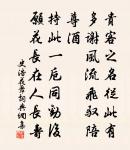 貴客之名從此有
多謝風流飛馭陪
尊酒
持此一卮同勸後
願花長在人長壽
史浩花舞詞典網集